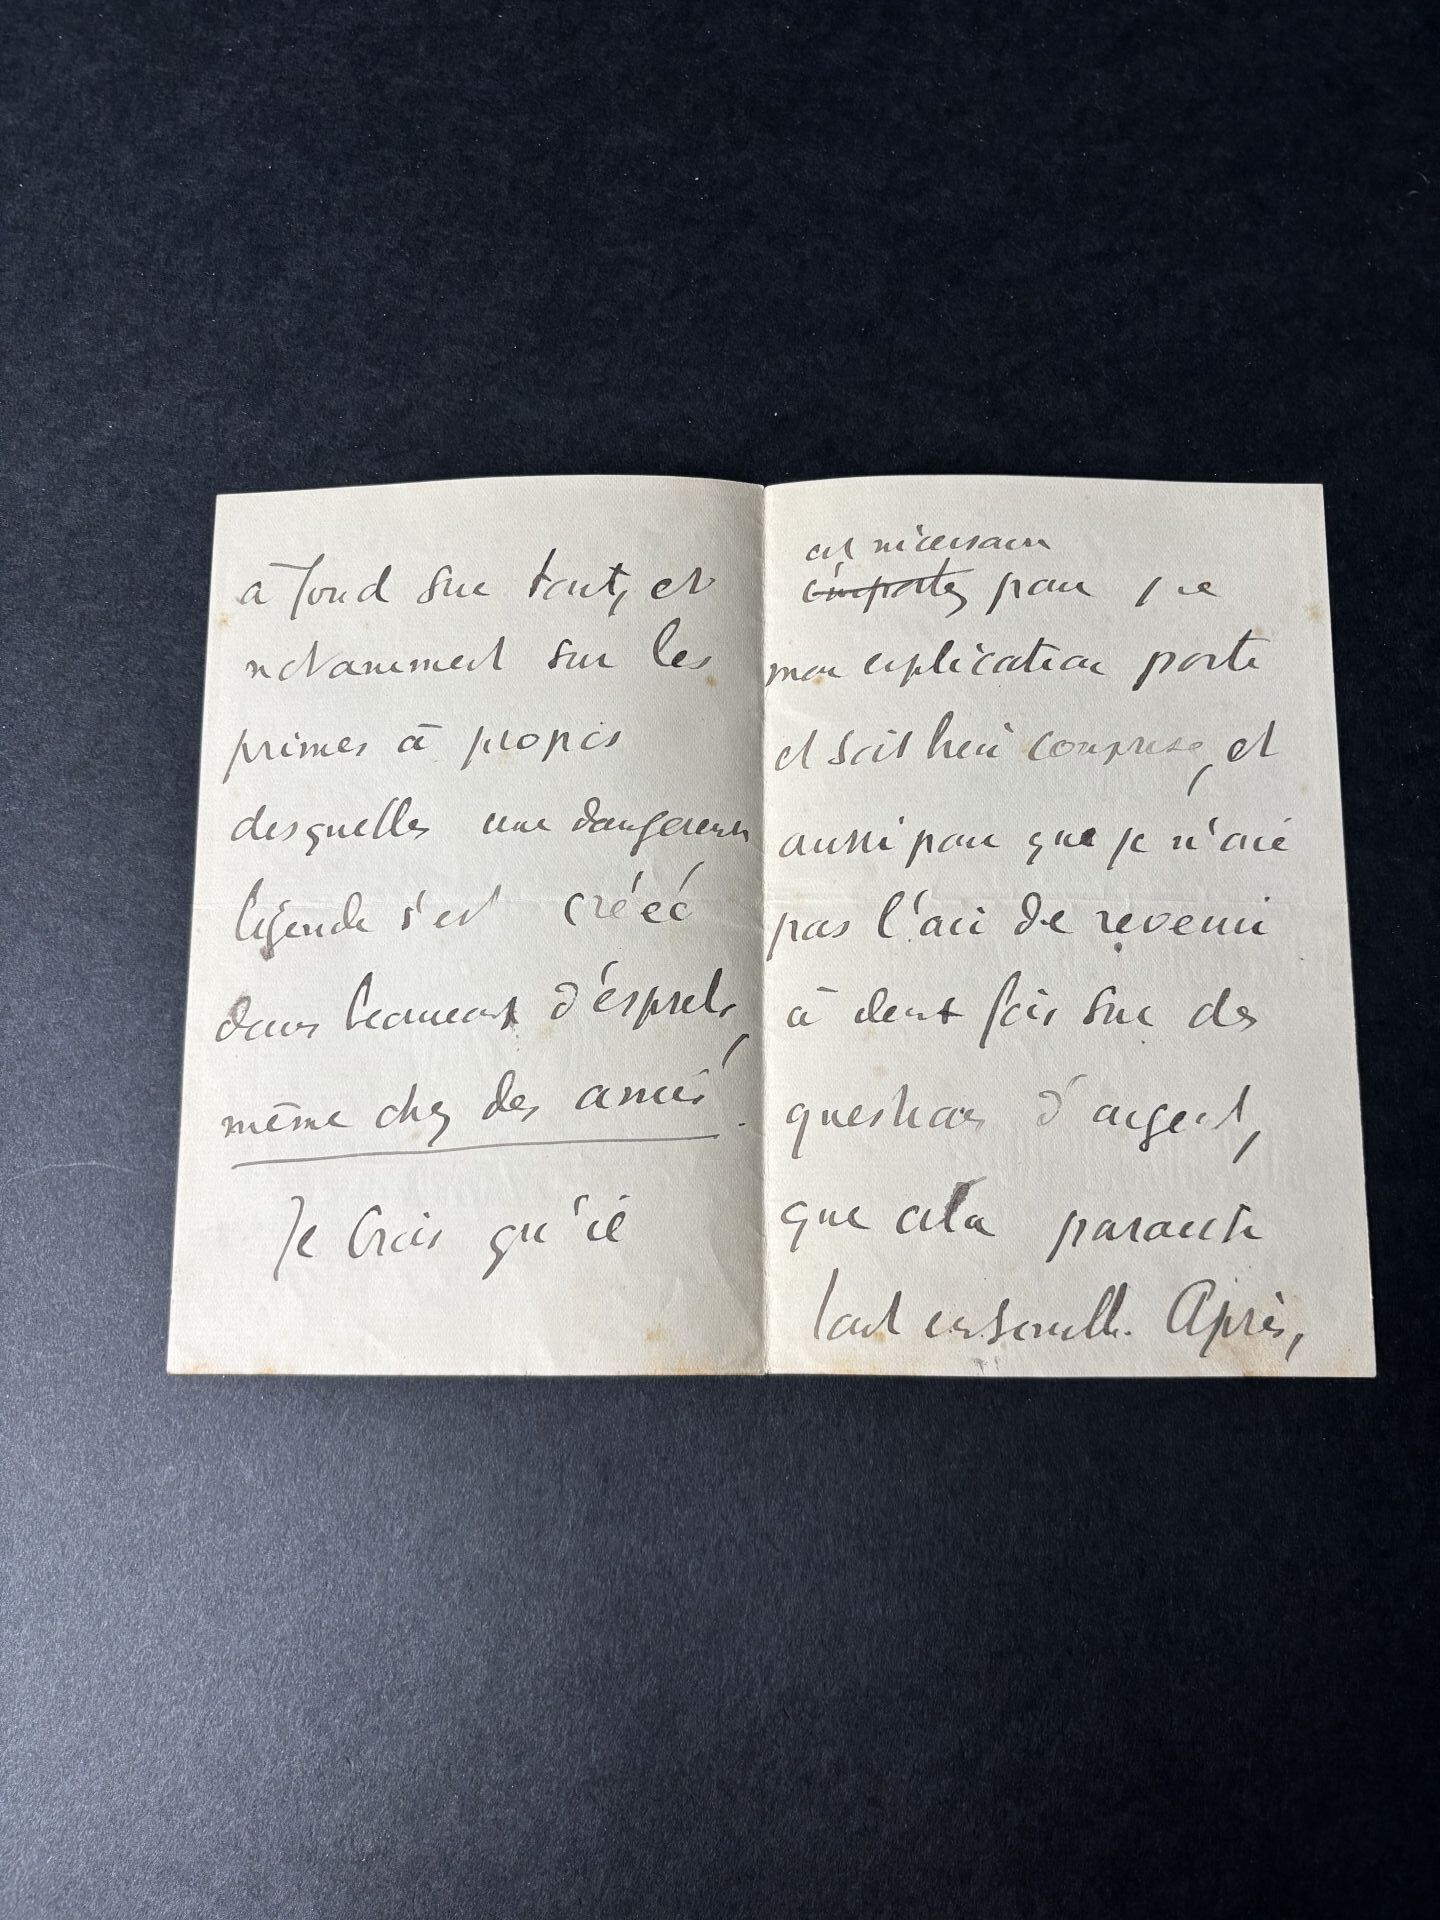 à fond sur tout, et
notamment sur les
primes à propos
desquelles une dangereuse
légende s'est créée
dans beaucoup d'esprits,
même chez des amis.
Je crois qu'il
est nécessaire
importe pour que
mon explication porte
et soit bien comprise, et
aussi pour que je n'aie
pas l'air de revenir
à deux fois sur des
questions d'argent,
que cela paraisse
tout ensemble. Après,